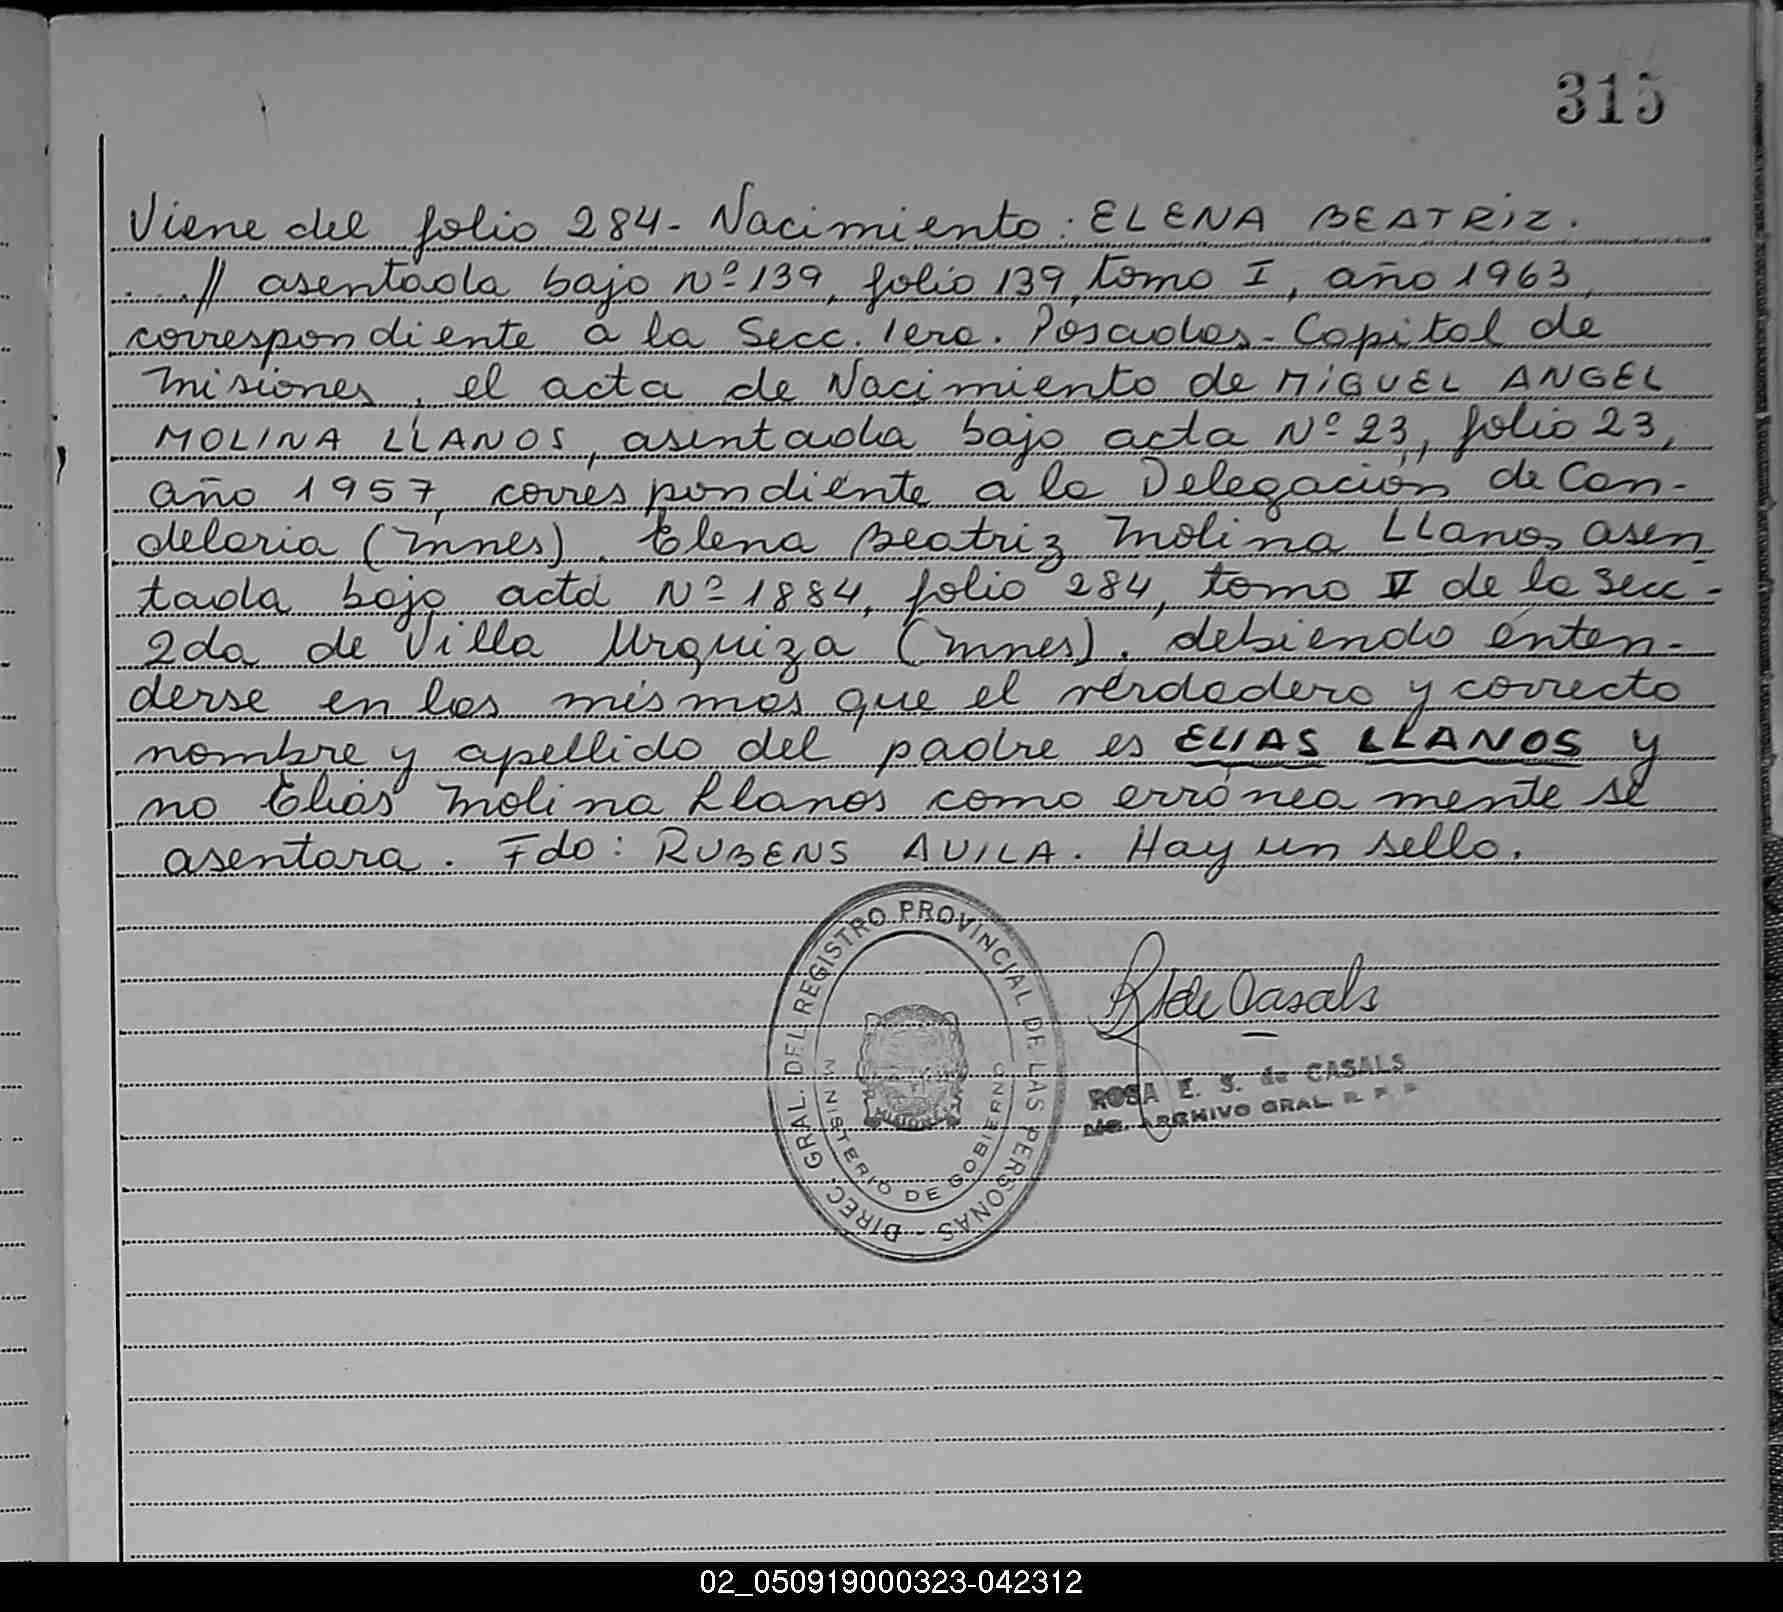 315
Viene del folio 284- Nacimiento: ELENA BEATRIZ.
...// asentada bajo Nº 139, folio 139, tomo I, año 1963,
correspondiente a la Secc. 1era. Posadas- Capital de
Misiones, el acta de Nacimiento de MIGUEL ANGEL
MOLINA LLANOS, asentada bajo acta Nº 23, folio 23,
año 1957, correspondiente a la Delegación de Can-
delaria (Mnes). Elena Beatriz Molina Llanos asen
tada bajo acta Nº 1884, folio 284, tomo V de la Secc-
2da de Villa Urquiza (Mnes). debiendo enten-
derse en los mismos que el verdadero y correcto
nombre y apellido del padre es ELIAS LLANOS y
no Elias Molina Llanos como erróneamente se
asentara. Fdo: RUBENS AVILA. Hay un sello.
DIREC. GRAL. DEL REGISTRO PROVINCIAL DE LAS PERSONAS -
MINISTERIO DE GOBIERNO
MISIONES
de Casals
ROSA E. S. de CASALS
ARCHIVO GRAL. R. P. P.
02_050919000323-042312